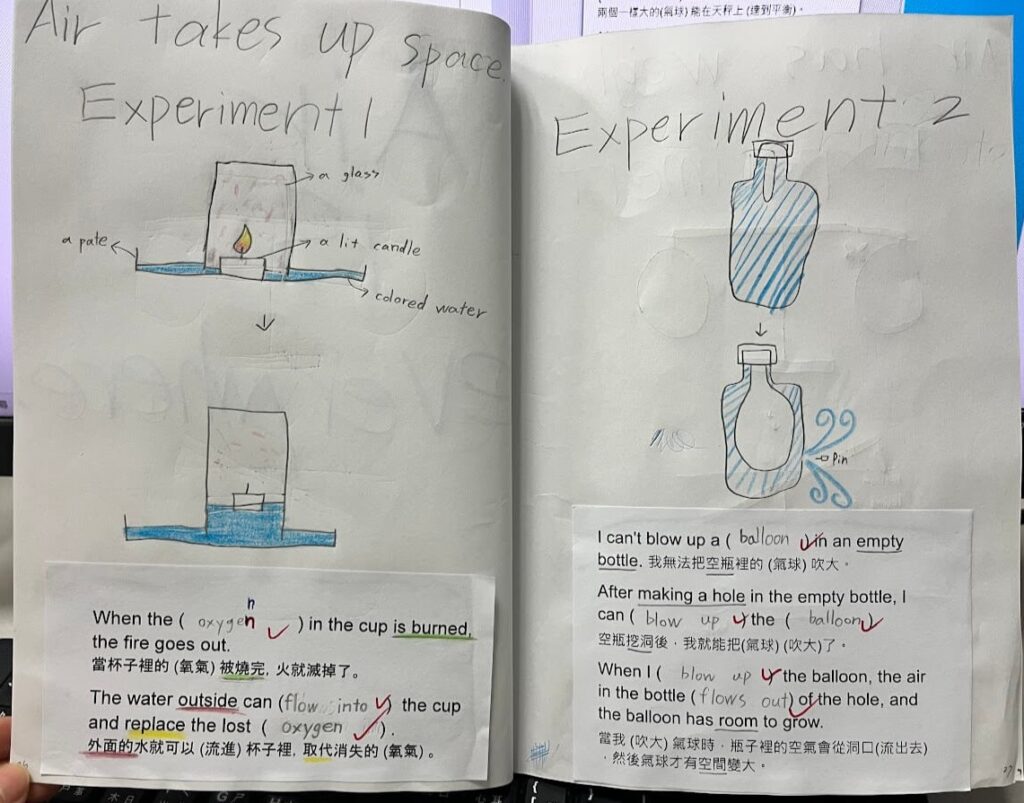 兩個一樣大的(氣球)能在天秤上(達到平衡)。
Air takes up space.
Experiment 1
a glass
a lit candle
a pate
colored water
n
When the ( oxygen ) in the cup is burned,
the fire goes out.
當杯子裡的 (氧氣) 被燒完, 火就滅掉了。
The water outside can (flow into) the cup
and replace the lost ( oxygen ).
外面的水就可以 (流進) 杯子裡, 取代消失的 (氧氣) 。
26
Experiment 2
Pin
I can't blow up a ( balloon ) in an empty
bottle. 我無法把空瓶裡的 (氣球) 吹大。
After making a hole in the empty bottle, I
can ( blow up ) the ( balloon )
空瓶挖洞後,我就能把(氣球) (吹大)了。
When I ( blow up ) the balloon, the air
in the bottle (flows out) of the hole, and
the balloon has room to grow.
當我 (吹大) 氣球時,瓶子裡的空氣會從洞口(流出去)
,然後氣球才有空間變大。
27